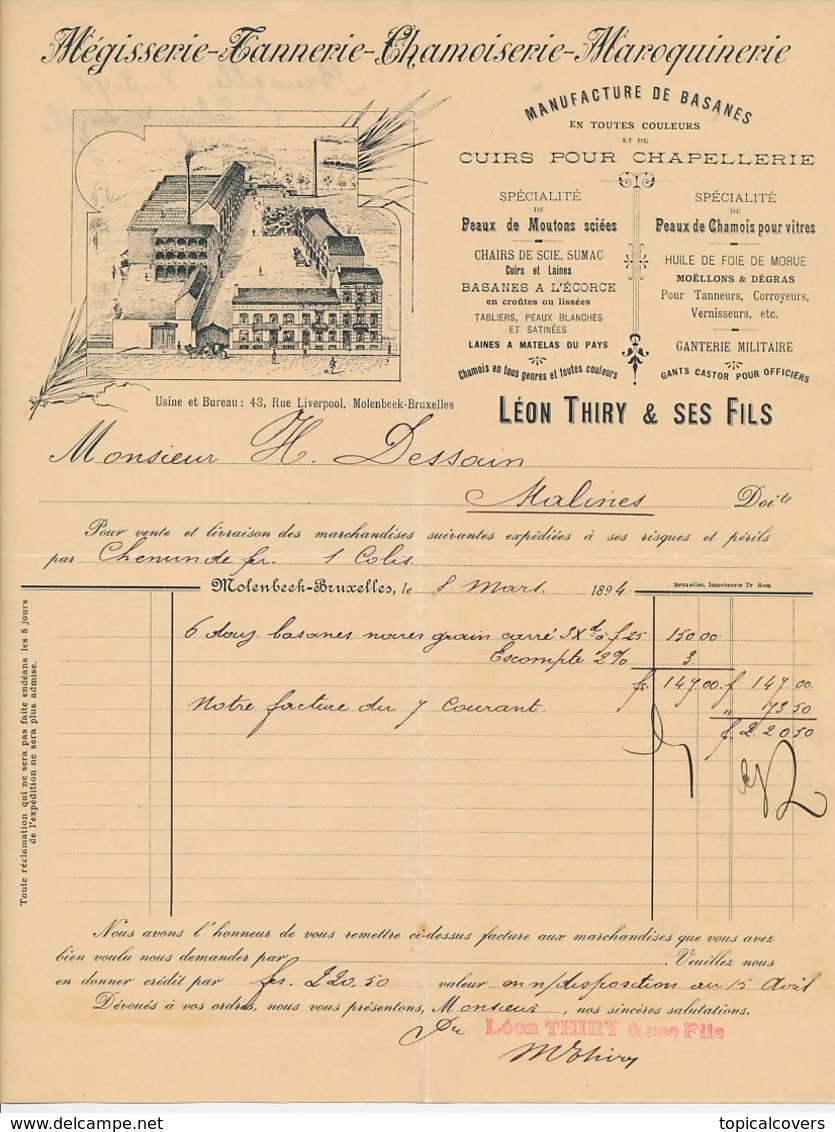 Mégisserie-Tannerie-Chamoiserie-Maroquinerie
MANUFACTURE DE BASANES
EN TOUTES COULEURS
ET DE
CUIRS POUR CHAPELLERIE
SPÉCIALITÉ
DE
Peaux de Moutons sciées
CHAIRS DE SCIE, SUMAC
Cuirs et Laines
BASANES A L'ÉCORCE
en croûtes ou lissées
TABLIERS, PEAUX BLANCHES
ET SATINÉES
LAINES A MATELAS DU PAYS
Chamois en tous genres et toutes couleurs
SPÉCIALITÉ
DE
Peaux de Chamois pour vitres
HUILE DE FOIE DE MORUE
MOËLLONS & DÉGRAS
Pour Tanneurs, Corroyeurs,
Vernisseurs, etc.
GANTERIE MILITAIRE
GANTS CASTOR POUR OFFICIERS
Usine et Bureau : 43, Rue Liverpool, Molenbeek-Bruxelles
LÉON THIRY & SES FILS
Monsieur H. Dessain
Malines Doit
Pour vente et livraison des marchandises suivantes expédiées à ses risques et périls
par Chemin de fer 1 Colis
Molenbeek-Bruxelles, le 8 Mars 1894
Bruxelles, Imprimerie Tr Rein
6 douz basanes noires grain carré à f 25 150.00
Escompte 2% 3.
fs. 147.00 f 147.00
Notre facture du 7 Courant. " 73.50
f. 220.50
Toute réclamation qui ne sera pas faite endéans les 8 jours
de l'expédition ne sera plus admise.
Nous avons l'honneur de vous remettre ci-dessus facture aux marchandises que vous avez
bien voulu nous demander par . Veuillez nous
en donner crédit par frs. 220.50 valeur en n/disposition au 15 Avril
Dévoués à vos ordres, nous vous présentons, Monsieur, nos sincères salutations.
Léon THIRY & ses Fils
MThiry
delcampe.net
topicalcovers